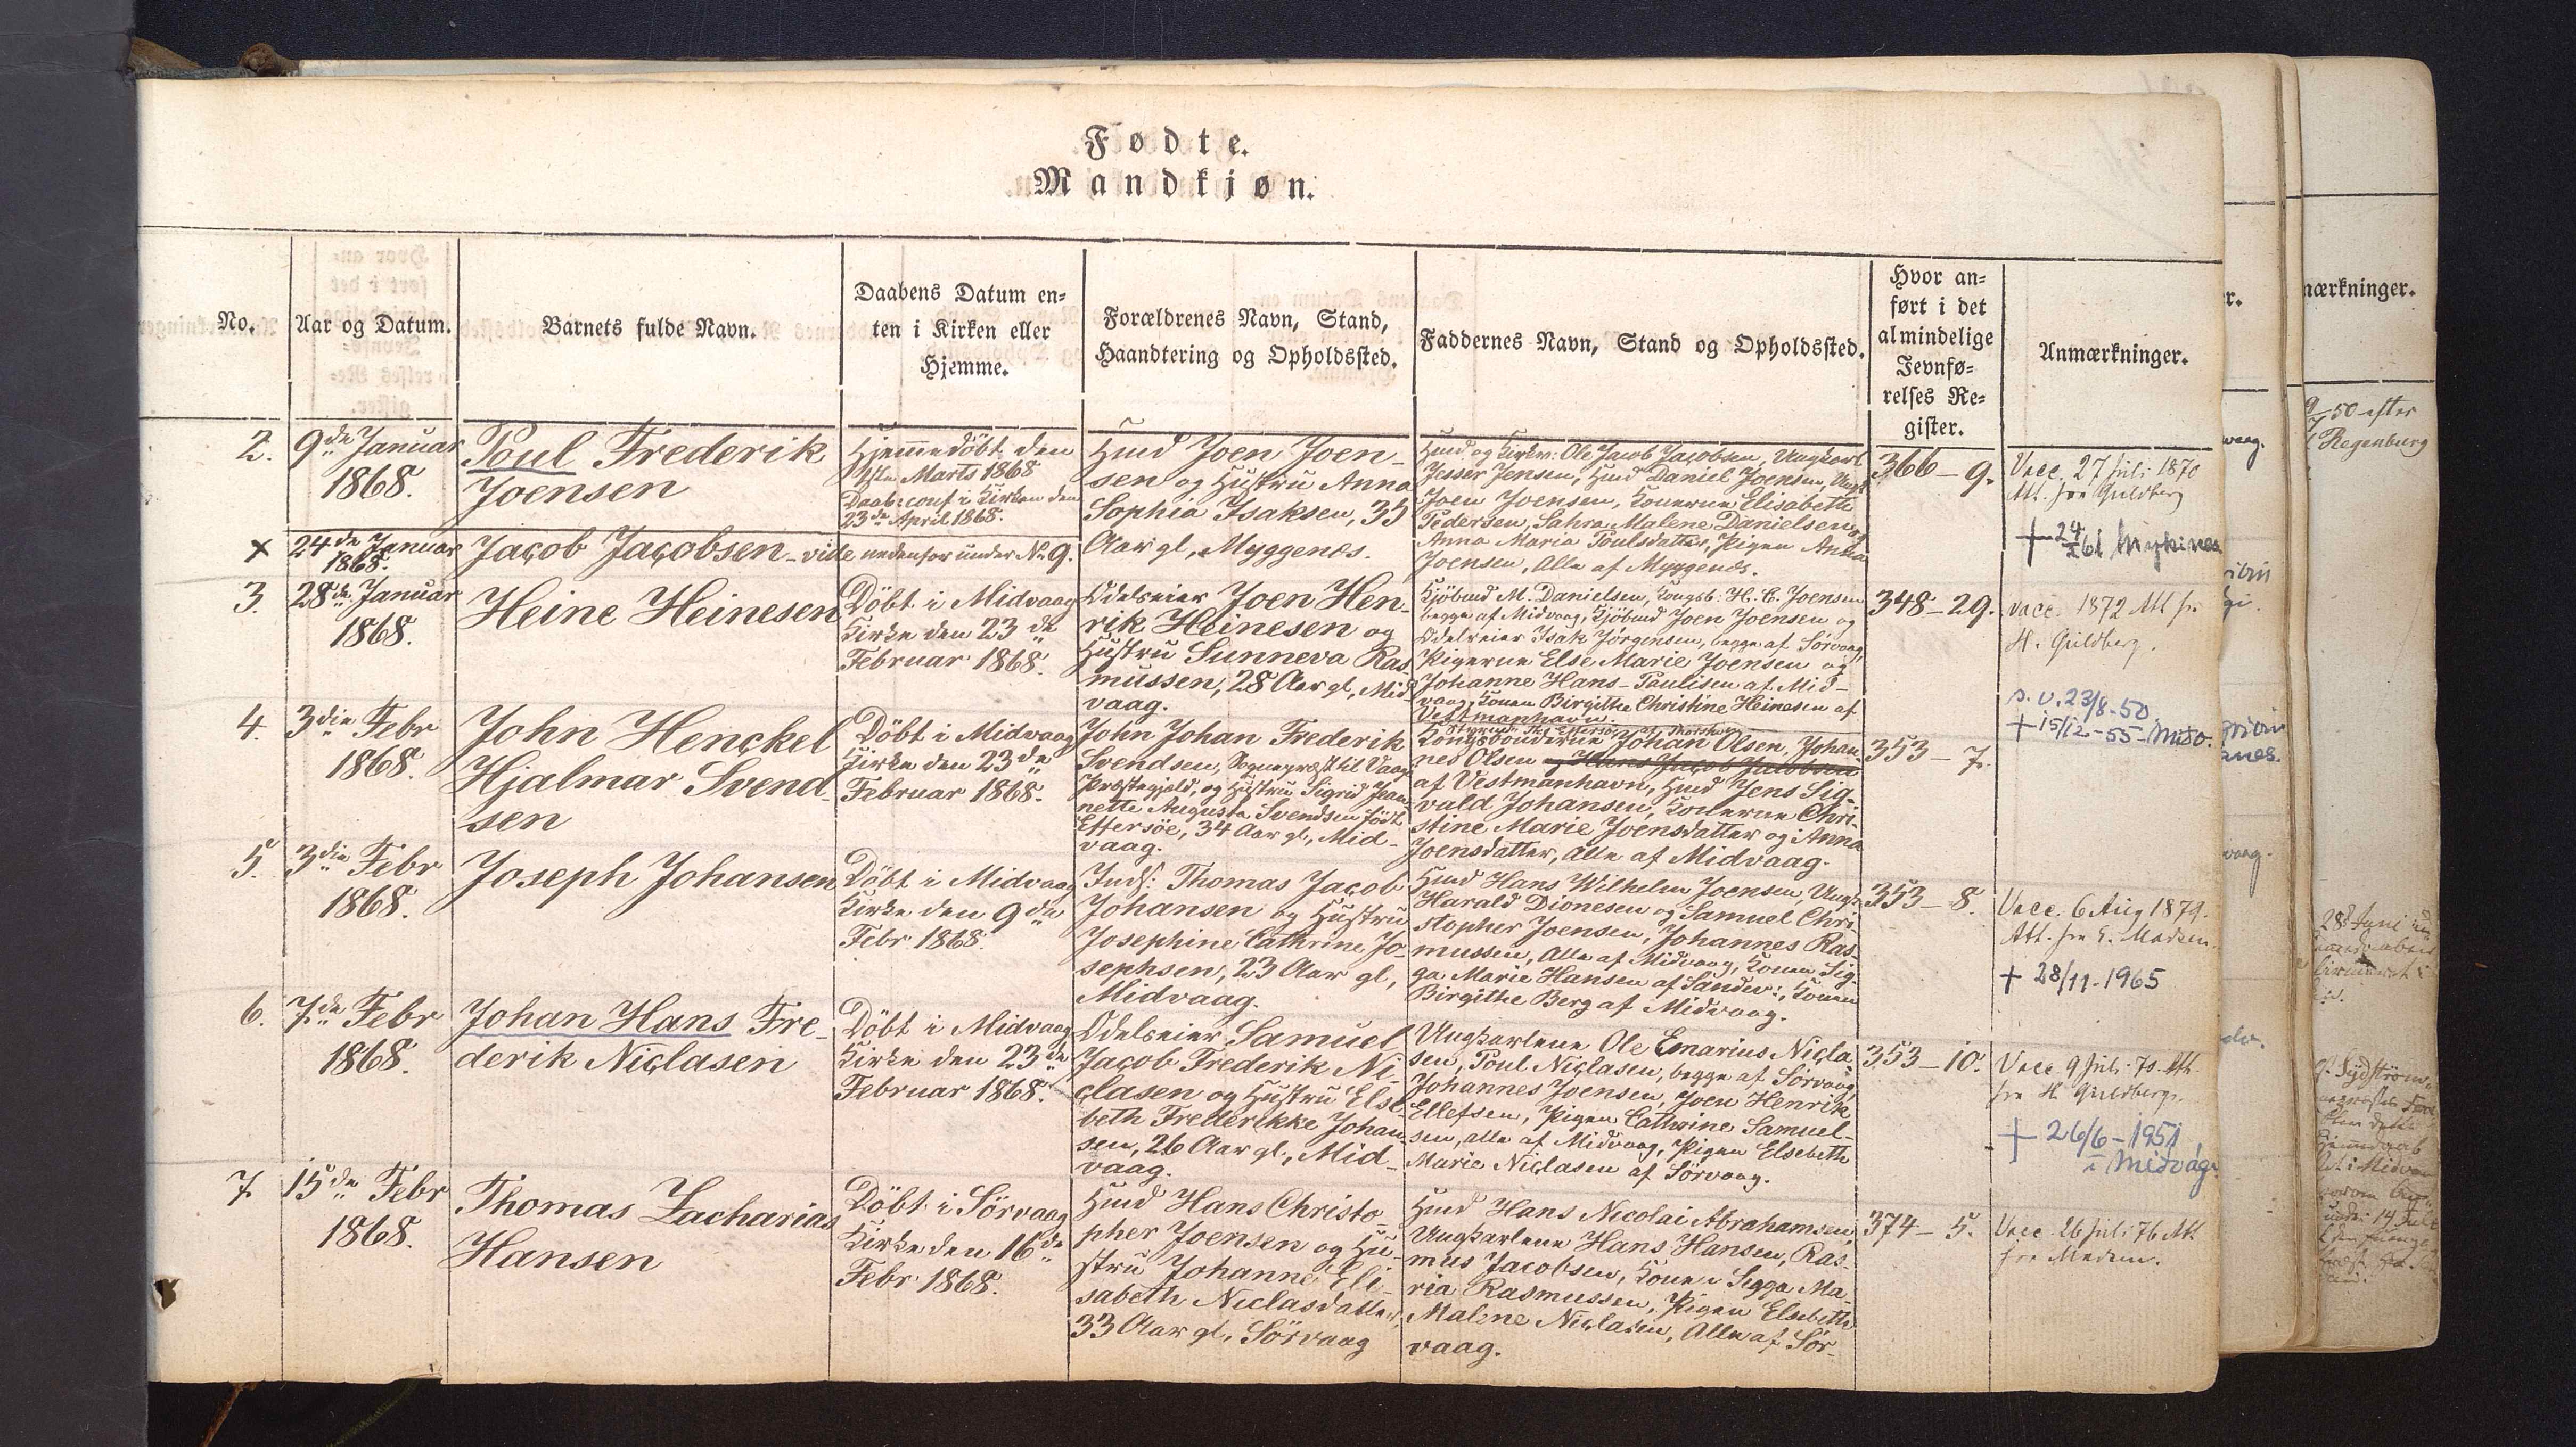 Fødte.
Mandkjøn.
No.
Aar og Datum.
Barnets fulde Navn.
Daabens Datum en-
ten i Kirken eller
Hjemme.
Forældrenes Navn, Stand,
Haandtering og Opholdssted.
Faddernes Navn, Stand og Opholdssted.
Hvor an-
ført i det
almindelige
Jevnfø-
relses Re-
gister.
Anmærkninger.
2.
9de Januar
1868.
Poul Frederik
Joensen
Hjemmedöbt den
1ste Marts 1868
Daab: conf i Kirken den
23de April 1868.
Hmd Joen Joen-
sen og Hustru Anna
Sophia Isaksen, 35
Aar gl, Myggenæs.
Hmd og Kirkv: Ole Jacob Jacobsen, Ungkarl
Jesser Jensen, Hmd Daniel Joensen, Ungk
Joen Joensen, Konerne Elisabeth
Pedersen, Sahra Malene Danielsen og
Anna Maria Poulsdatter, Pigen Anna
Joensen, Alle af Myggenæs.
366-9.
Vacc. 27 Juli 1870
Att. fra Guldberg
x
24de Januar
1868.
Jacob Jacobsen - vide nedenfor under No 9.
3.
28de Januar
1868.
Heine Heinesen
Döbt i Midvaag
Kirke den 23de
Februar 1868.
Odelseier Joen Hen-
rik Heinesen og
Hustru Sunneva Ras
mussen, 28 Aar gl, Mid-
vaag.
Kjöbmd M. Danielsen, Kongsb: H. C. Joensen
begge af Midvaag, Kjöbmd Joen Joensen og
Odelseier Isak Jörgensen, begge af Sörvaag,
Pigerne Else Marie Joensen og
Johanne Hans-Paulisen af Mid-
vaag, Konen Birgithe Christine Heinesen af
Vestmanhavn.
348-29.
vacc. 1872 Att fr.
H. Guldberg.
s. v. 23/8-50
+ 15/12-55 - Midv.
4.
3die Febr
1868.
John Henckel
Hjalmar Svend-
sen
Döbt i Midvaag
Kirke den 23de
Februar 1868.
John Johan Frederik
Svendsen, Sognepræst til Vaagø
Præstegjeld, og Hustru Sigrid Jean-
nette Augusta Svendsen födt
Effersöe, 34 Aar gl., Mid-
vaag.
Kongsbönderne Johan Olsen, Johan-
nes Olsen og Hans Jacob Jacobsen
af Vestmanhavn, Hmd Jens Sig-
vald Johansen, Konerne Chri-
stine Marie Joensdatter og Anna
Joensdatter, Alle af Midvaag.
353-7.
5.
3die Febr
1868.
Joseph Johansen
Döbt i Midvaag
Kirke den 9de
Febr 1868.
Inds: Thomas Jacob
Johansen og Hustru
Josephine Cathrine Jo-
sephsen, 23 Aar gl,
Midvaag.
Hmd Hans Wilhelm Joensen, Ungk
Harald Dionesen og Samuel Chri-
stopher Joensen, Johannes Ras-
mussen, Alle af Midvaag, Konen Sig-
ga Marie Hansen af Sandev:, Konen
Birgithe Berg af Midvaag.
353-8.
Vacc. 6 Aug 1879.
Att. fra E. Madsen.
+ 28/11-1965
6.
7de Febr
1868.
Johan Hans Fre-
derik Niclasen
Döbt i Midvaag
Kirke den 23de
Februar 1868.
Odelseier Samuel
Jacob Frederik Ni
clasen og Hustru Else-
beth Frederikke Johan-
sen, 26 Aar gl., Mid-
vaag.
Ungkarlene Ole Emarius Nicla-
sen, Poul Niclasen, begge af Sörvaag,
Johannes Joensen, Joen Henrik
Ellefsen, Pigen Cathrine Samuel-
sen, alle af Midvaag, Pigen Elsebeth
Marie Niclasen af Sörvaag.
353-10.
Vacc 9 Juli 70. Att.
fra H. Guldberg.
+ 26/6-1951
i Midvági
7.
15de Febr
1868.
Thomas Zacharias
Hansen
Döbt i Sörvaag
Kirke den 16de
Febr 1868.
Hmd Hans Christo
pher Joensen og Hu-
stru Johanne Eli-
sabeth Niclasdatter,
33 Aar gl. Sörvaag
Hmd Hans Nicolai Abrahamsen,
Ungkarlene Hans Hansen, Ras-
mus Jacobsen, Konen Sigga Ma-
ria Rasmussen, Pigen Elsebeth
Malene Niclasen, Alle af Sör-
vaag.
374-5.
Vacc. 26 Juli 76 Att
fra Madsen.